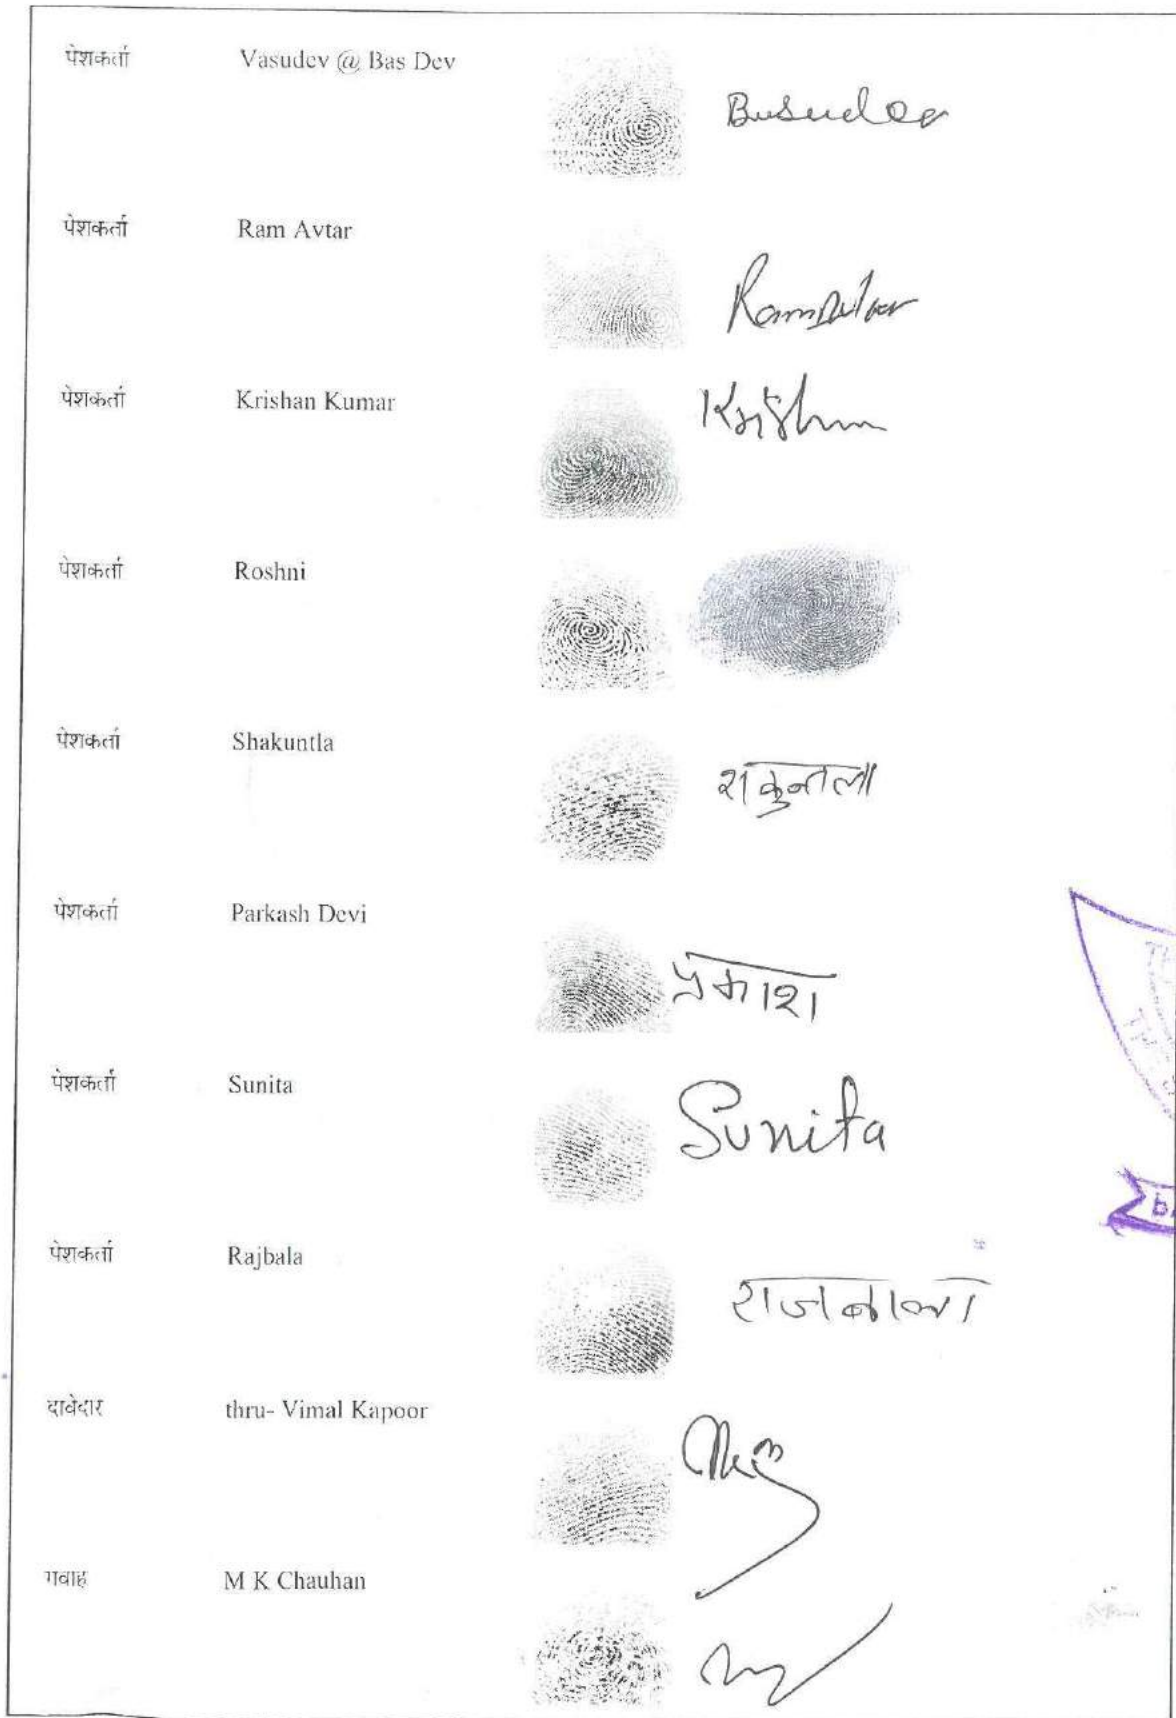 पेशकर्ता Vasudev @ Bas Dev
Busudev
पेशकर्ता Ram Avtar
RamAvtar
पेशकर्ता Krishan Kumar
Krishan
पेशकर्ता Roshni
पेशकर्ता Shakuntla
शकुन्तला
पेशकर्ता Parkash Devi
प्रकाश
पेशकर्ता Sunita
Sunita
पेशकर्ता Rajbala
राजबाला
दावेदार thru- Vimal Kapoor
गवाह M K Chauhan